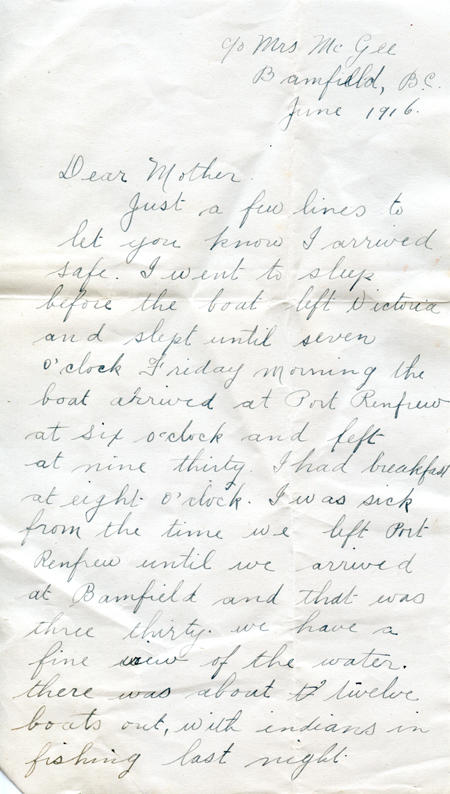 c/o Mrs McGee
Bamfield, B.C.
June 1916.
Dear Mother.
Just a few lines to
let you know I arrived
safe. I went to sleep
before the boat left Victoria
and slept until seven
o'clock Friday morning the
boat arrived at Port Renfrew
at six o'clock and left
at nine thirty. I had breakfast
at eight o'clock. I was sick
from the time we left Port
Renfrew until we arrived
at Bamfield and that was
three thirty. we have a
fine view of the water.
there was about twelve
boats out, with indians in
fishing last night.